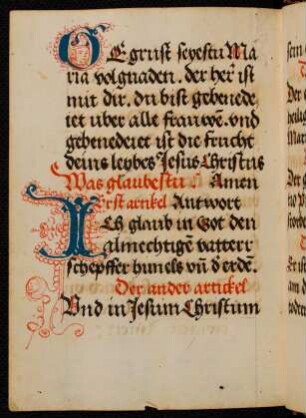 GEgrust seyestu Ma
ria volgnaden. der her ist
mit dir. du bist gebenede
iet uber alle frauwē. vnd
gebenedeiet ist die frucht
deins leybes Jesus Christus
Was glaubestu Amen
Erst artikel Antwort
ICh glaub in Got den
almechtigē vatterr
schepffer himels vn̄ d'erdē.
Der ander artickel
Vnd in Jesum Christum